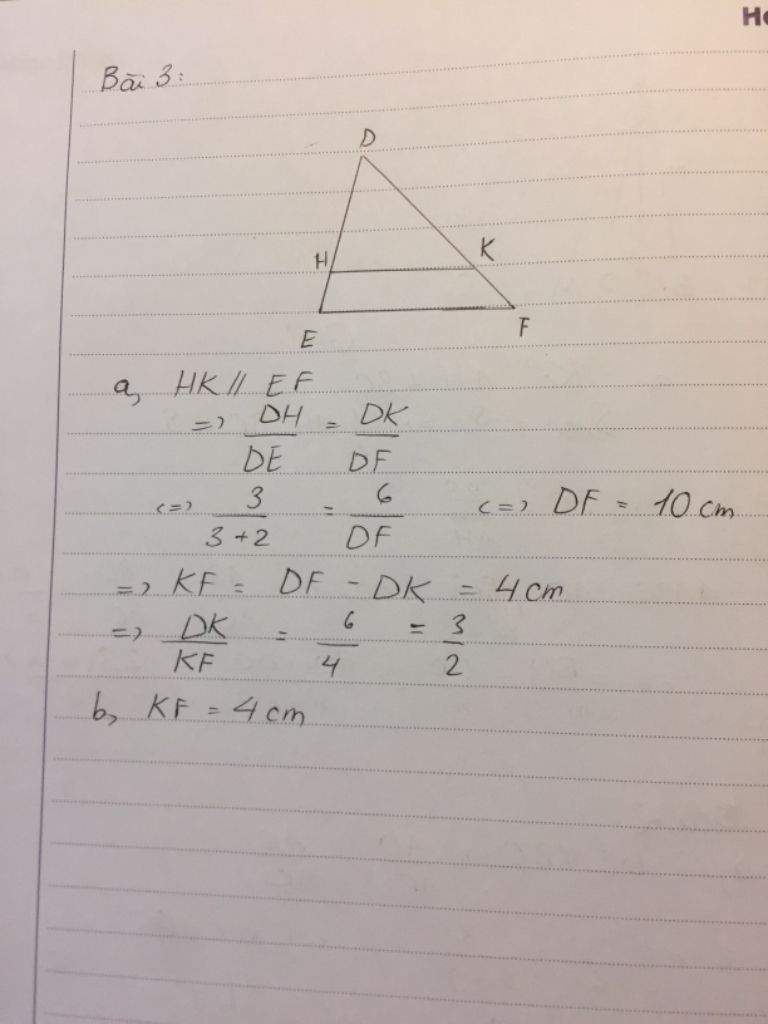 Bài 3:
D
H K
E F
a, HK // EF
=> DH/DE = DK/DF
<=> 3/(3+2) = 6/DF <=> DF = 10 cm
=> KF = DF - DK = 4 cm
=> DK/KF = 6/4 = 3/2
b, KF = 4 cm